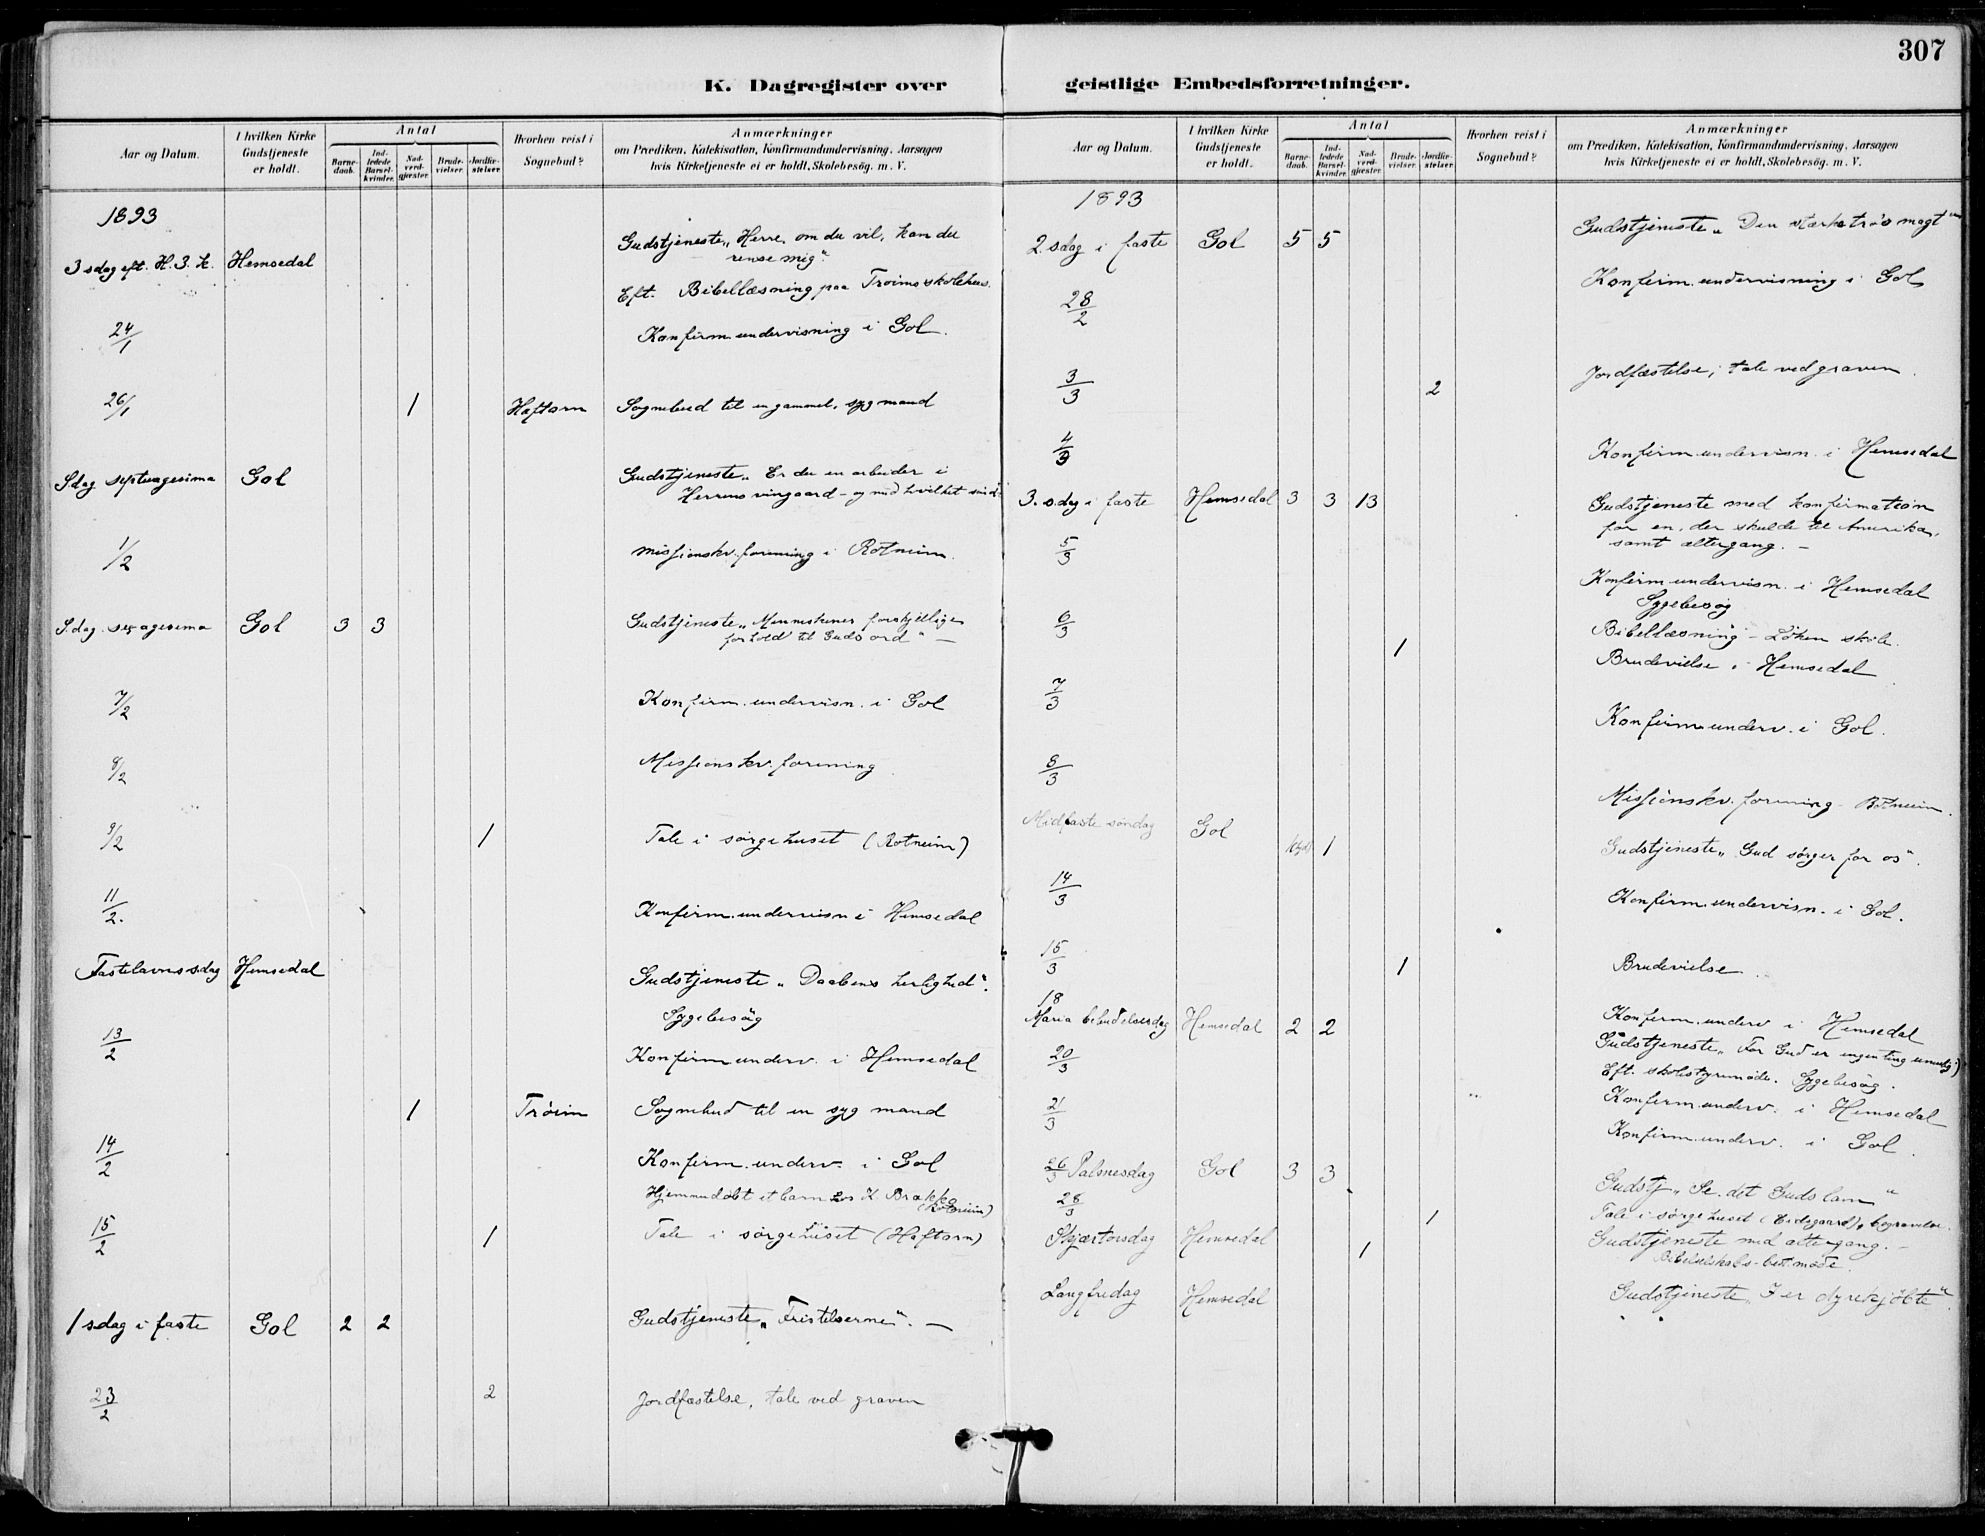 307
K. Dagregister over geistlige Embedsforretninger.
Aar og Datum.
I hvilken Kirke Gudstjeneste er holdt.
Antal
Barne-daab.
Ind-ledede Barsel-kvinder.
Nad-verd-gjæster.
Brude-vielser.
Jordfæ-stelser.
Hvorhen reist i Sognebud?
Anmærkninger
om Prædiken, Katekisation, Konfirmandundervisning, Aarsagen
hvis Kirketjeneste ei er holdt, Skolebesög, m. V.
1893
3 sdag eft. H. 3. k. Hemsedal Gudstjeneste „Herre, om du vil, kan du
rense mig“
Eft. Bibellæsning paa Troims skolehus.
24/1 Konfirm.undervisning i Gol.
26/1 1 Haftorn Sognebud til en gammel, syg mand
Sdag septuagesima Gol Gudstjeneste „Er du en arbeider i
Herrens vingaard – og med hvilket sind“
1/2 Missionskv.forening i Rotneim.
S.dag sexagesima Gol 3 3 Gudstjeneste „Menneskenes forskjellige
forhold til Guds ord“ –
7/2 Konfirm.undervisn. i Gol
8/2 Missionskv.forening
9/2 1 Tale i sørgehuset (Rotneim)
11/2. Konfirm.undervisn i Hemsedal
Fastelavnssdag Hemsedal Gudstjeneste „Daabens herlighed“.
Sygebesøg
13/2 Konfirm.underv. i Hemsedal
1 Trøim Sognebud til en syg mand
14/2 Konfirm.underv. i Gol
Hjemmedøbt et barn hos K. Brakka
(Rotneim)
15/2 1 Tale i sørgehuset (Haftorn)
1 sdag i faste Gol 2 2 Gudstjeneste „Fristelserne“. –
23/2 2 Jordfæstelse, tale ved graven
Aar og Datum.
I hvilken Kirke Gudstjeneste er holdt.
Antal
Barne-daab.
Ind-ledede Barsel-kvinder.
Nad-verd-gjæster.
Brude-vielser.
Jordfæ-stelser.
Hvorhen reist i Sognebud?
Anmærkninger
om Prædiken, Katekisation, Konfirmandundervisning, Aarsagen
hvis Kirketjeneste ei er holdt, Skolebesög, m. V.
1893
2 sdag i faste Gol 5 5 Gudstjeneste „Den stærke trøs magt“
28/2 Konfirm.undervisning i Gol
3/3 2 Jordfæstelse; tale ved graven.
4/3 Konfirm.undervisn. i Hemsedal
3. sdag i faste Hemsedal 3 3 13 Gudstjeneste med konfirmation
for en, der skulde til Amerika,
samt altergang. –
5/3 Konfirm.undervisn. i Hemsedal
Sygebesøg
6/3 Bibellæsning – Løken skole.
1 Brudevielse i Hemsedal
7/3 Konfirm.underv. i Gol.
8/3 Missionskv.forening – Rotneim.
Midfaste søndag Gol 1 Gudstjeneste „Gud sørger for os“.
14/3 Konfirm.undervisn. i Gol.
15/3 1 Brudevielse.
18 Konfirm.underv i Hemsedal
Maria bebudelsesdag Hemsedal 2 2 Gudstjeneste „For Gud er ingenting umulig“
Eft. skolestyremøde. Sygebesøg.
20/3 Konfirm.underv. i Hemsedal
21/3 Konfirm.underv. i Gol.
26/3 Palmesdag Gol 3 3 Gudstj „Se det Guds lam“
28/3 1 Tale i sørgehuset (Eidsgaard), begravelse.
Skjærtorsdag Hemsedal 1 Gudstjeneste med altergang. –
Bibelselskabs-best.møde.
Langfredag Hemsedal Gudstjeneste „I er dyrekjøbte“